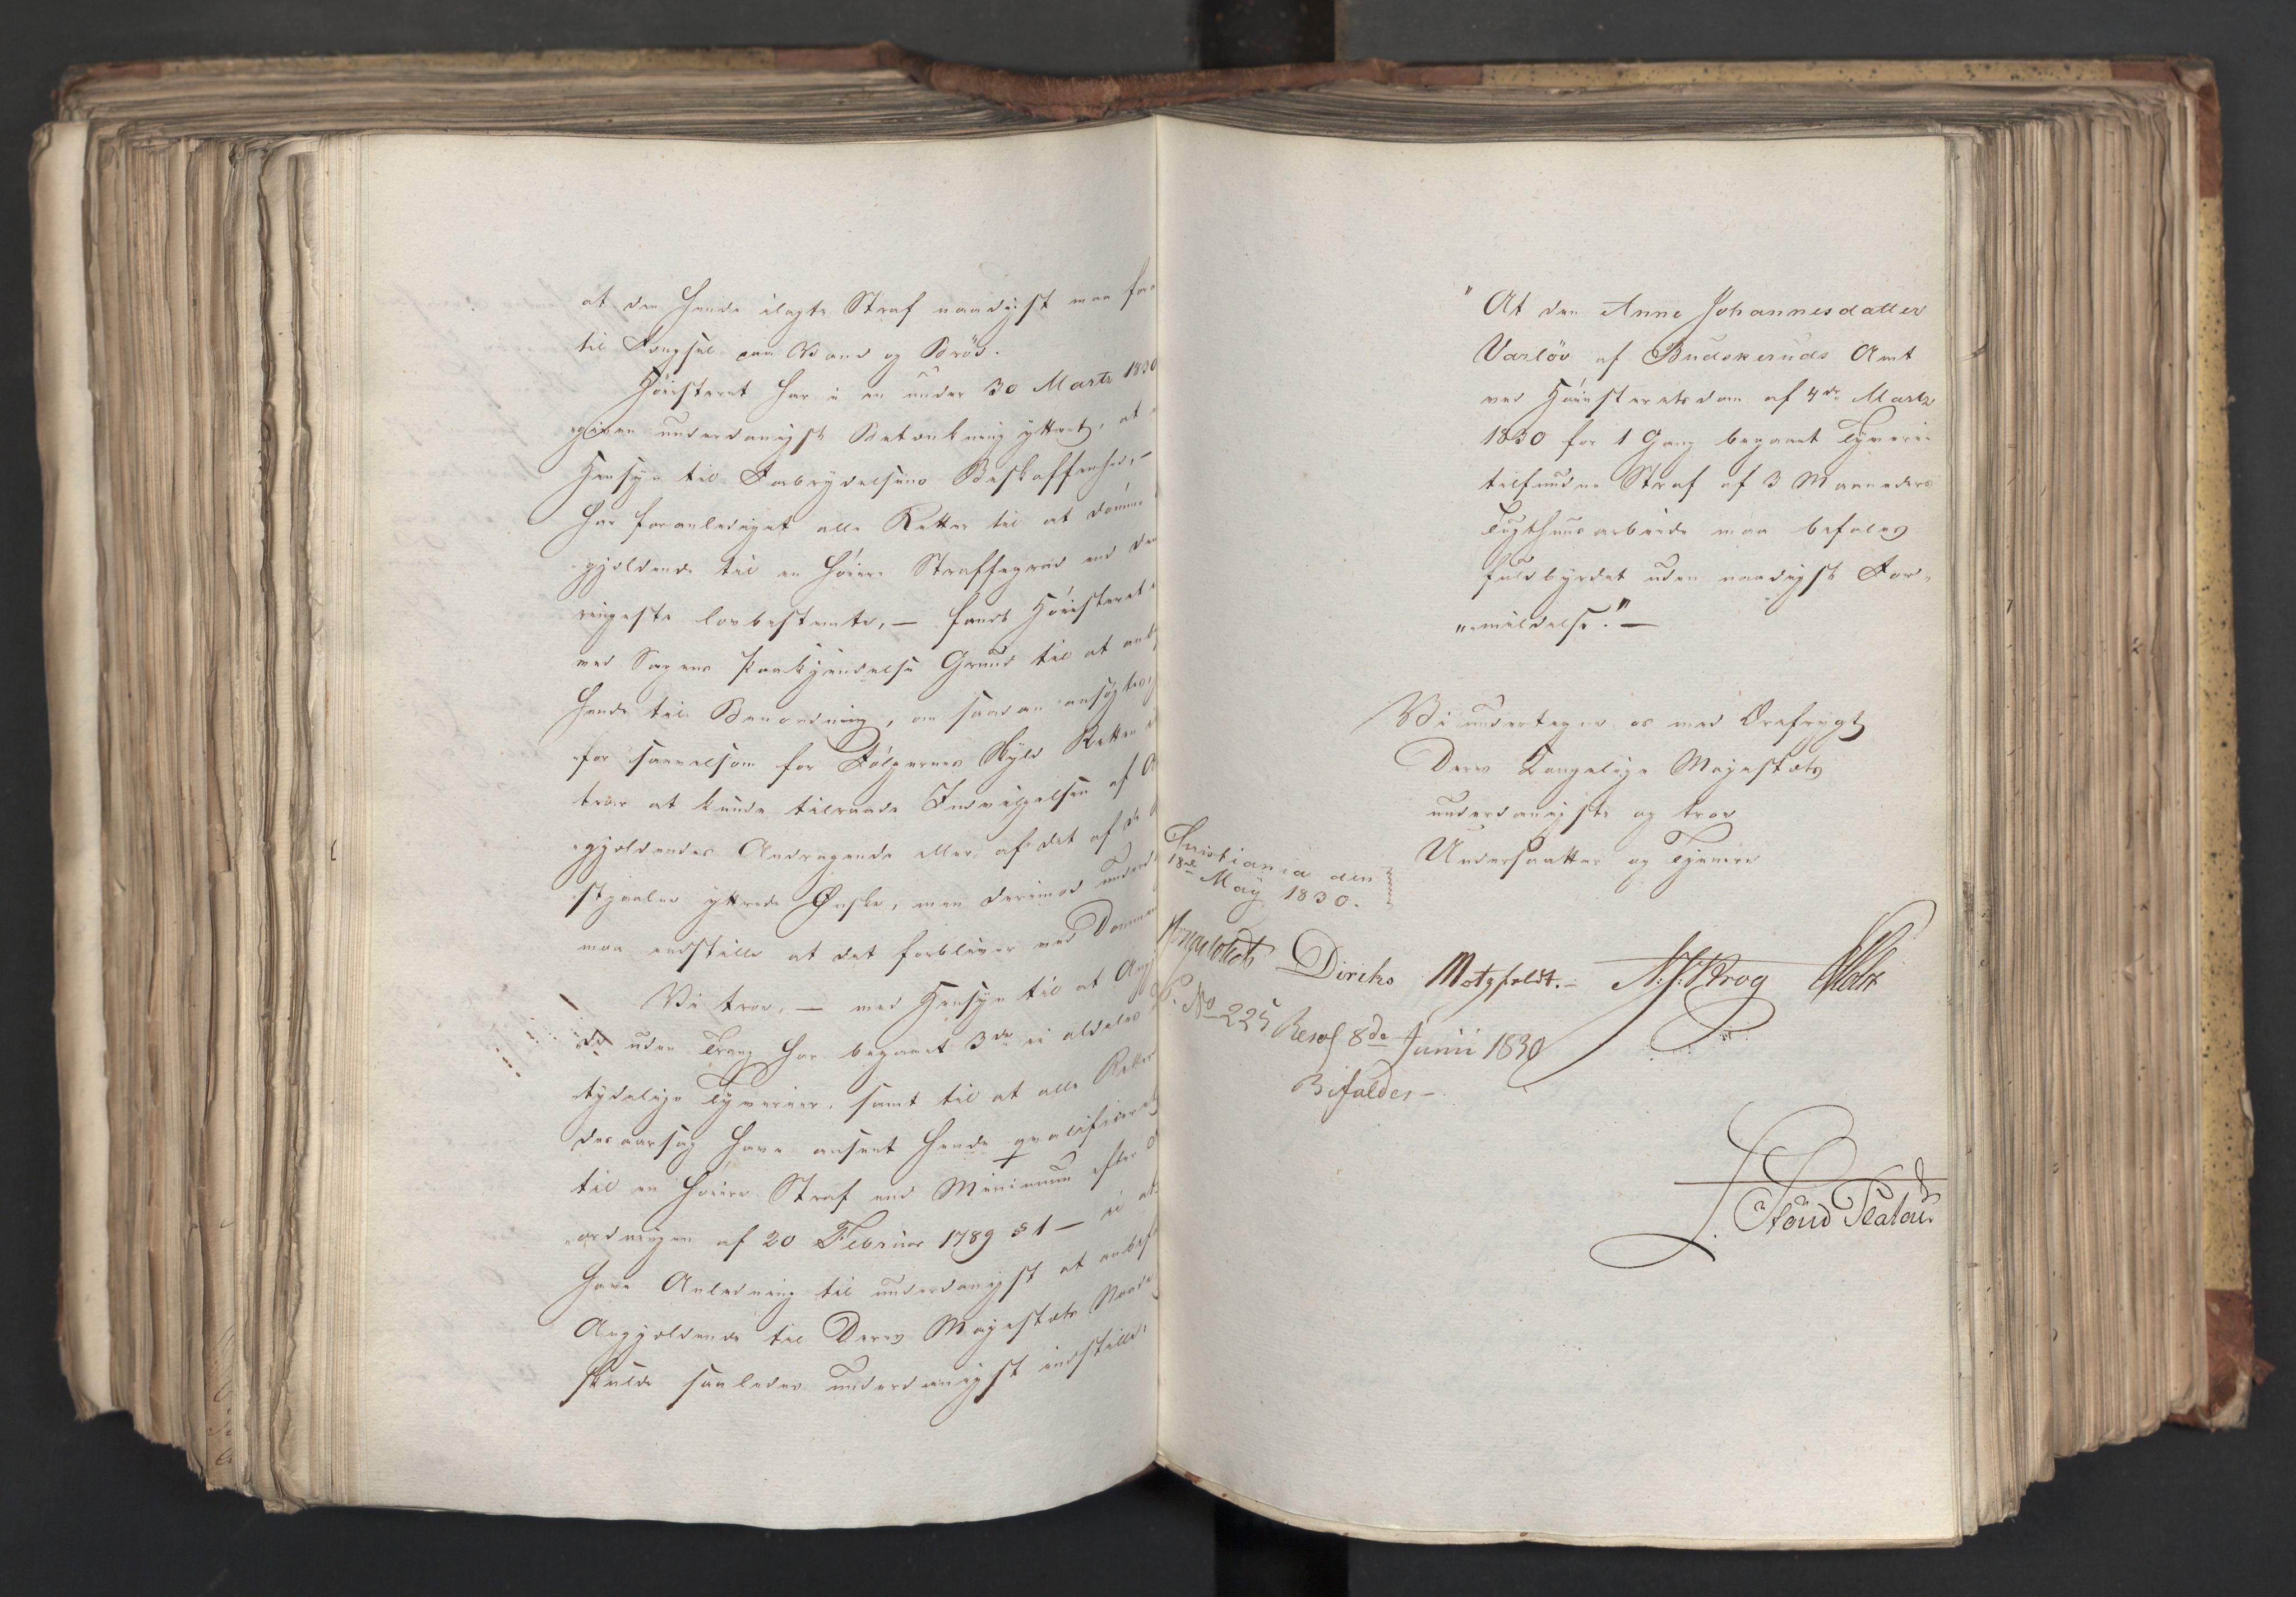 at den hende ilagte Straf naadigst maa for
til Fængsel paa Vand og Brød.
Høiesteret har i en under 30 Martz 1830
given underdanigst Betænkning yttret, at
Hensyn til Forbrydelsens Beskaffenhed, -
har foranlediget alle Retter til at dømme
gjeldende til en høiere Straffegrad end den
ringeste lovbestemte, — fandt Høiesteret
ved Sagens Paakjendelse Grund til at anb
hende til Benaadning, om saadan ansøgtes,
for saavelsom for Følgernes Skyld Retten
troer at kunde tilraade Indvilgelsen af A
gjeldendes Andragende eller af det af de
stjaalne yttrede Ønske, men derimod underd
maa indstille at det forbliver ved Dommen
Vi troe, — med Hensyn til at Ang
de uden Trang har begaaet 3de ei aldeles
tydelige Tyverier, samt til at alle Retter
desaarsag have anseet hende qvalificeret
til en høiere Straf end Minimum efter
ordningen af 20 Februar 1789 § 1 — ei at
have Anledning til underdanigst at anbef
Angjeldende til Deres Majestæts Naade
skulde saaledes underdanigst indstille:
"At den Anne Johannesdatter
Varløv af Budskeruds Amt
ved Høiesteretsdom af 4de Martz
1830 for 1 Gang begaaet Tyverie
tilfundne Straf af 3 Maaneders
Tugthuusarbeide maa befales
fuldbyrdet uden naadigst For-
"mildelse." —
Vi undertegne os med Ærefrygt
Deres Kongelige Majestæts
underdanigste og troe
Undersaatter og Tjenere
Christiania den
18de May 1830.
Diriks Motzfeldt.- Krog
No 225 Resol 8de Junii 1830
Bifaldes -